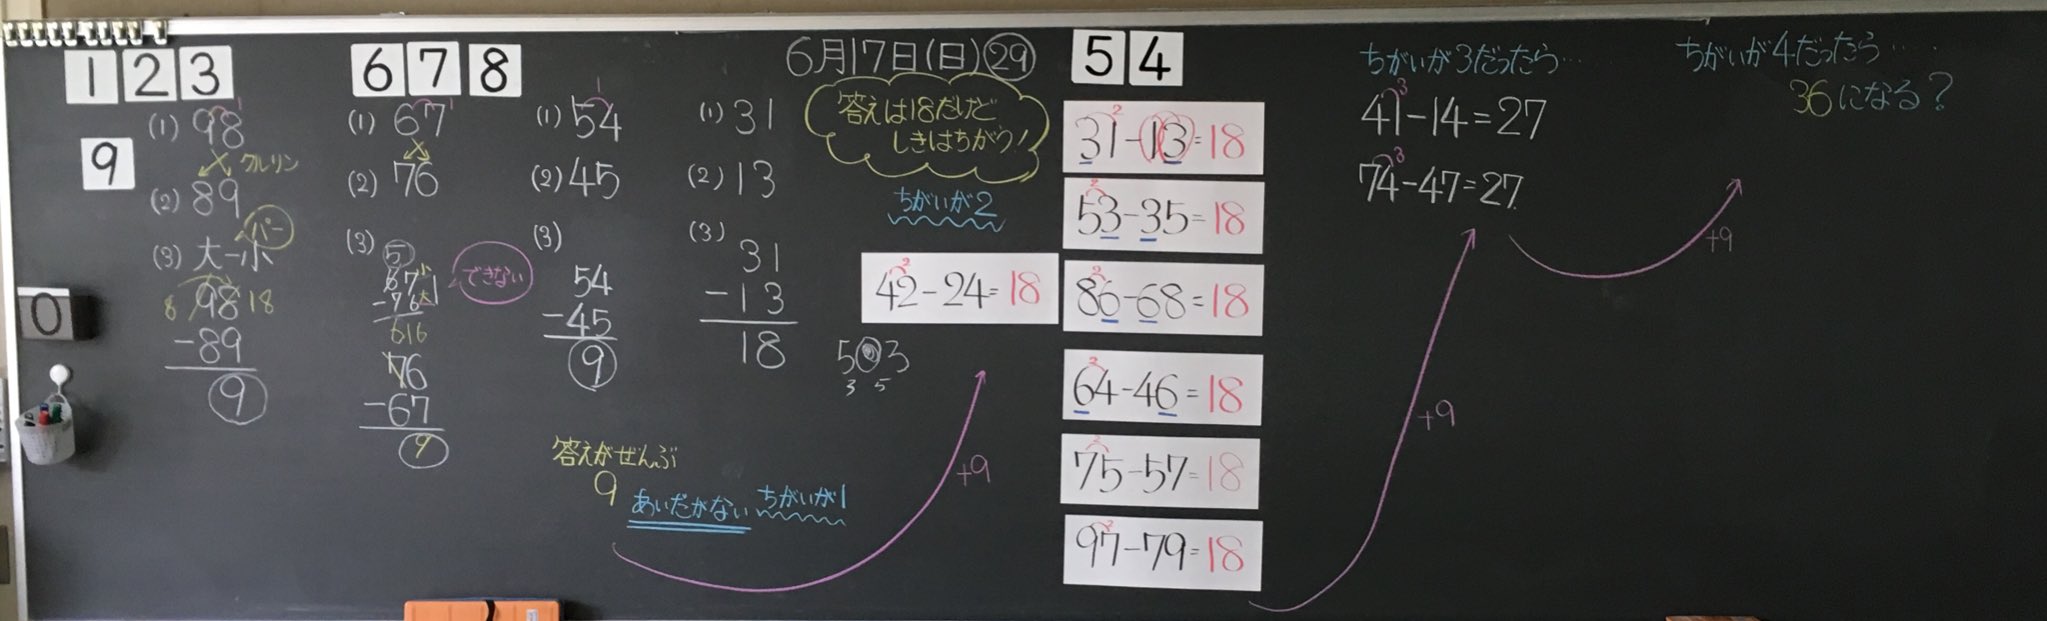 1 2 3
9
0
(1) 98 1
クルリン
(2) 89
バー
(3) 大-小
8 98 18
-89
9
6 7 8
(1) 67 1
(2) 76
(3) 5
67 小
-76 大
616
できない
76
-67
9
(1) 54 1
(2) 45
(3)
54
-45
9
(1) 31
(2) 13
(3)
31
-13
18
答えがぜんぶ
9
あいだがない ちがいが1
+9
6月17日(日)29
答えは18だけど、
しきはちがう!
ちがいが2
42-24=18 2
5 3
3 5
5 4
31-13=18 2
53-35=18 2
86-68=18 2
64-46=18 2
75-57=18 2
97-79=18 2
+9
ちがいが3だったら…
41-14=27 3
74-47=27 3
+9
ちがいが4だったら……
36になる?